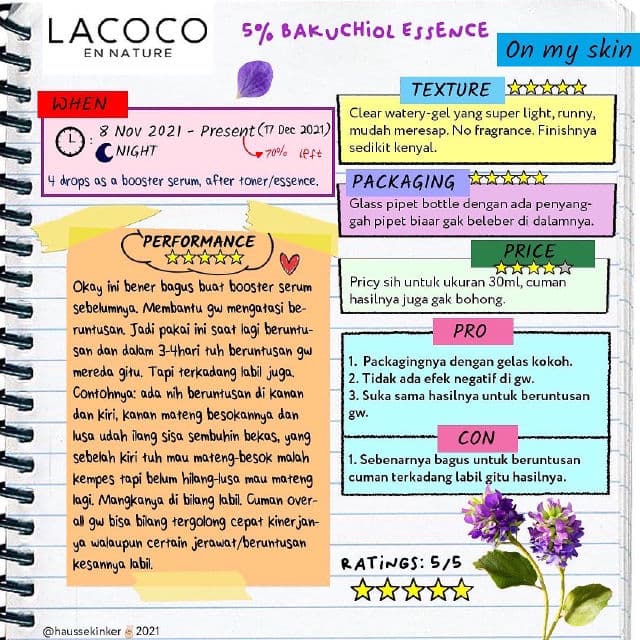 LACOCO
EN NATURE
5% BAKUCHiOL ESSENCE
On my skin
WHEN
: 8 Nov 2021 - Present (17 Dec 2021)
NIGHT
70% left
4 drops as a booster serum, after toner/essence.
TEXTURE
Clear watery-gel yang super light, runny,
mudah meresap. No fragrance. Finishnya
sedikit kenyal.
PACKAGING
Glass pipet bottle dengan ada penyang-
gah pipet biaar gak beleber di dalamnya.
PERFORMANCE
Okay ini bener bagus buat booster serum
sebelumnya. Membantu gw mengatasi be-
runtusan. Jadi pakai ini saat lagi beruntu-
san dan dalam 3-4hari tuh beruntusan gw
mereda gitu. Tapi terkadang labil juga.
Contohnya: ada nih beruntusan di kanan
dan kiri, kanan mateng besokannya dan
lusa udah ilang sisa sembuhin bekas, yang
sebelah kiri tuh mau mateng-besok malah
kempes tapi belum hilang-lusa mau mateng
lagi. Mangkanya di bilang labil. Cuman over-
all gw bisa bilang tergolong cepat kinerjan-
ya walaupun certain jerawat/beruntusan
kesannya labil.
PRICE
Pricy sih untuk ukuran 30ml, cuman
hasilnya juga gak bohong.
PRO
1. Packagingnya dengan gelas kokoh.
2. Tidak ada efek negatif di gw.
3. Suka sama hasilnya untuk beruntusan
gw.
CON
1. Sebenarnya bagus untuk beruntusan
cuman terkadang labil gitu hasilnya.
RATINGS: 5/5
@haussekinker 2021